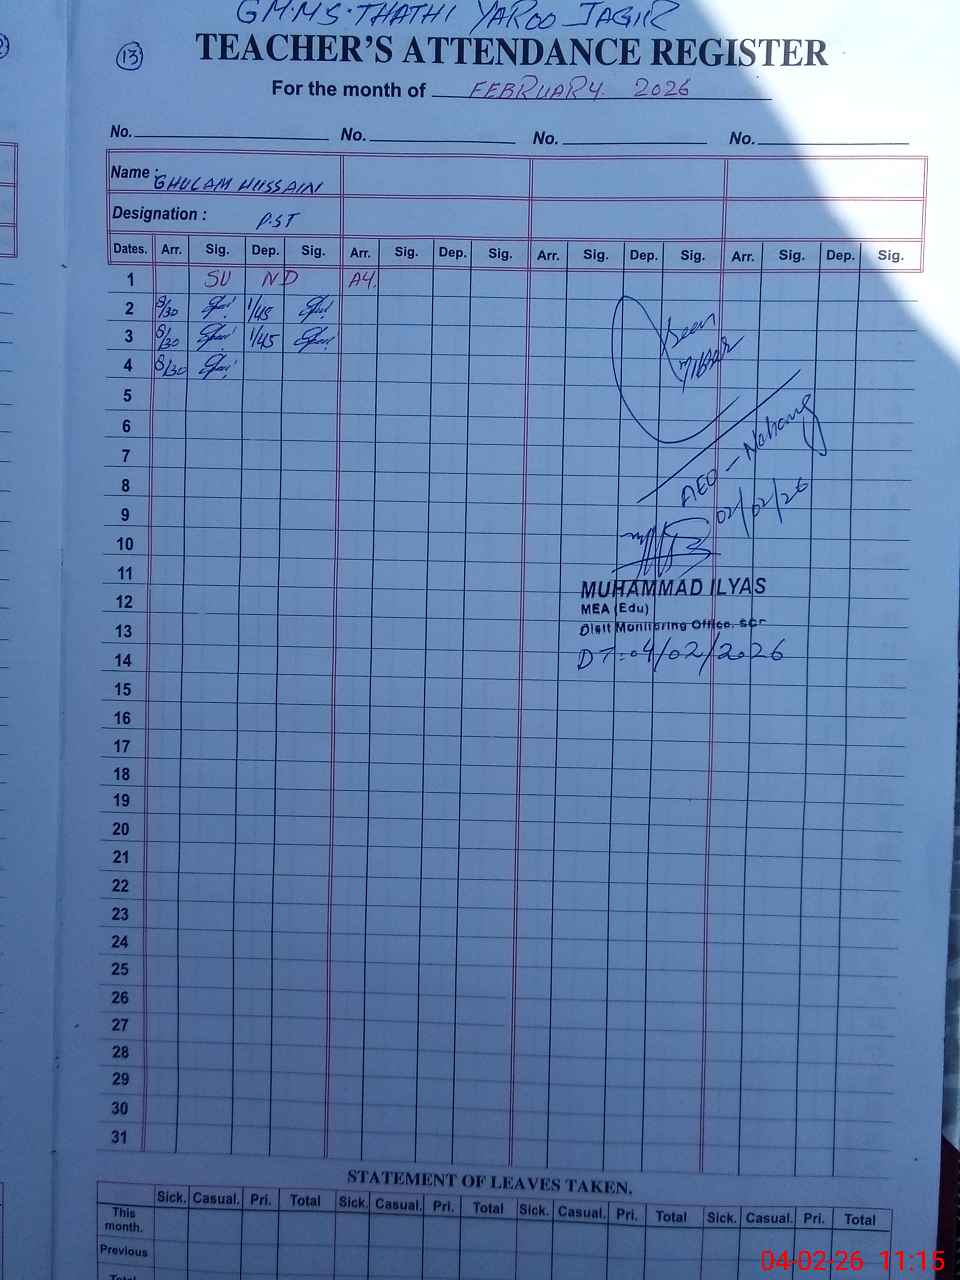 GMMS. THATHI YAROO JAGIR
13
TEACHER'S ATTENDANCE REGISTER
For the month of FEBRUARY. 2026
No. No. No. No.
Name : GHULAM HUSSAIN
Designation : P.ST
Dates. Arr. Sig. Dep. Sig. Arr. Sig. Dep. Sig. Arr. Sig. Dep. Sig. Arr. Sig. Dep. Sig.
1 SU ND A4.
2 8/30 1/45
3 8/30 1/45
4 8/30
5
6
7
8
9
10
11
12
13
14
15
16
17
18
19
20
21
22
23
24
25
26
27
28
29
30
31
Seen
AEO - Nahang
02/02/26
MUHAMMAD ILYAS
MEA (Edu)
Distt Monitoring Office.
DT:04/02/2026
STATEMENT OF LEAVES TAKEN.
Sick. Casual. Pri. Total Sick. Casual. Pri. Total Sick. Casual. Pri. Total Sick. Casual. Pri. Total
This month.
Previous
Total
04-02-26 11:15